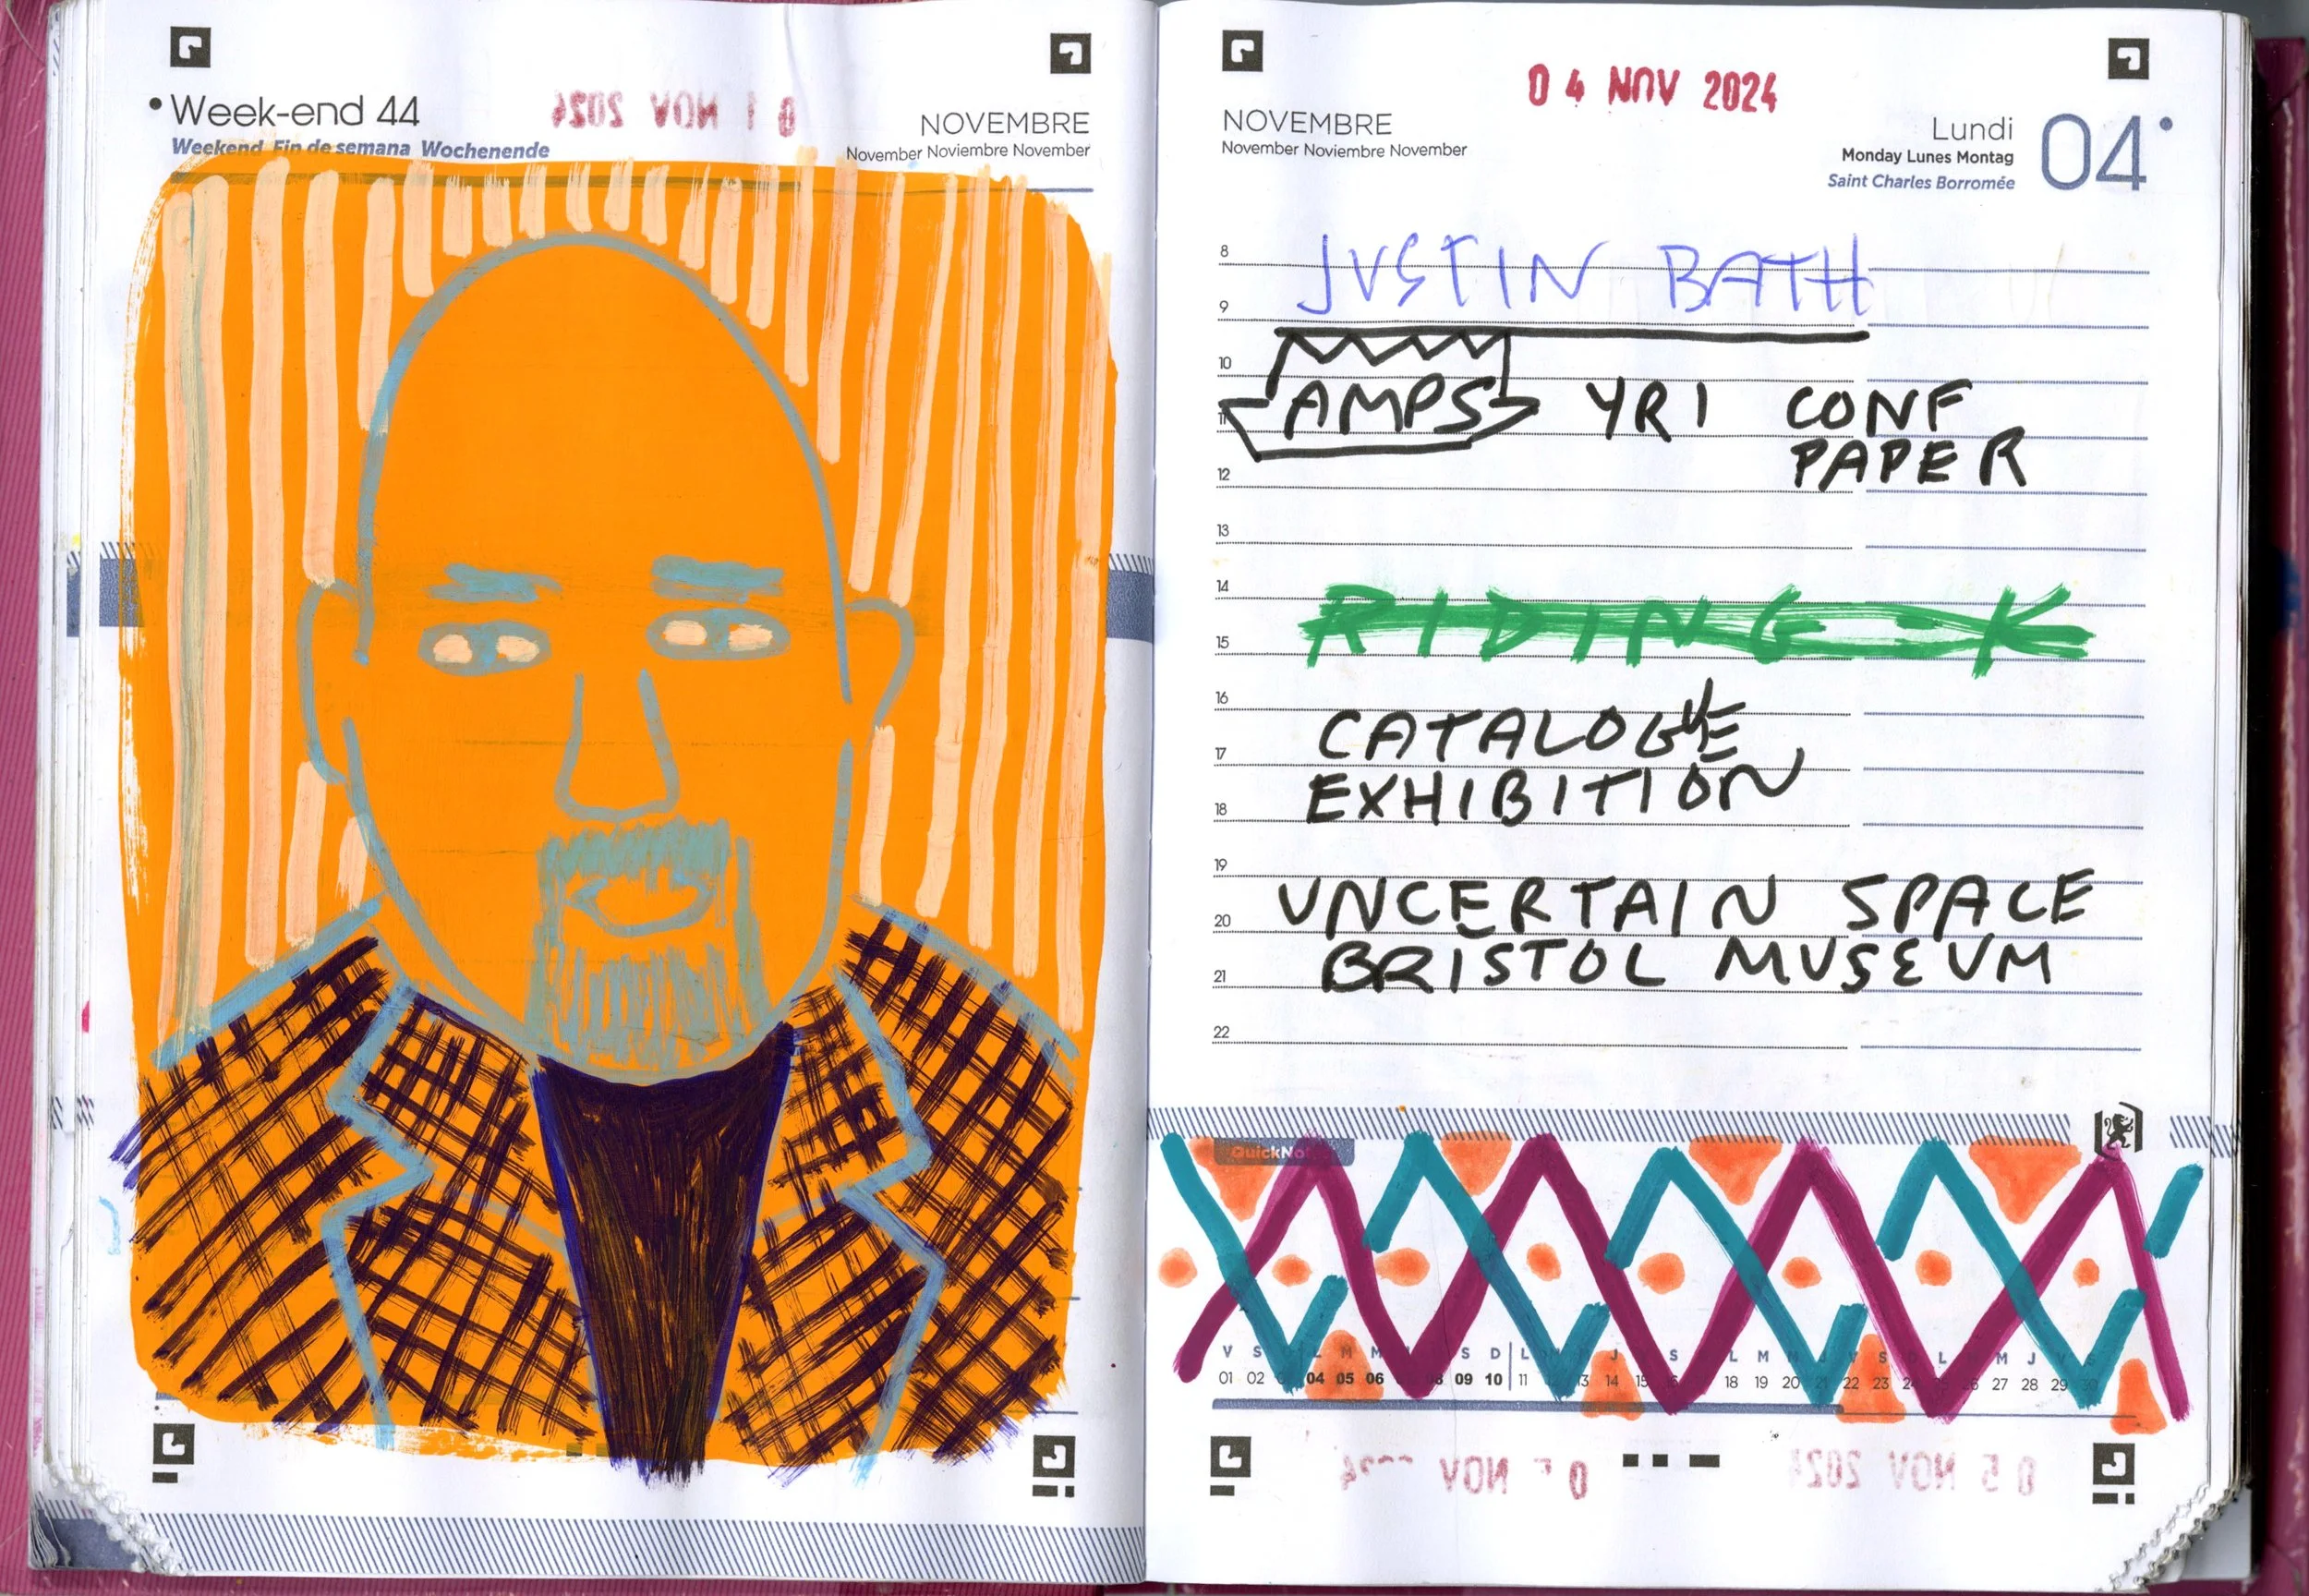 Week-end 44
Weekend Fin de semana Wochenende
01 NOV 2024
NOVEMBRE
November Noviembre November
04 NOV 2024
NOVEMBRE
November Noviembre November
Lundi 04
Monday Lunes Montag
Saint Charles Borromée
8
JUSTIN BATH
9
10
AMPS YR1 CONF
11
PAPER
12
13
14
RIDING - K
15
16
CATALOGUE
17
EXHIBITION
18
19
UNCERTAIN SPACE
20
BRISTOL MUSEUM
21
22
V S L M M S D L J S L M V S L M J
01 02 04 05 06 09 10 11 13 14 15 18 19 20 21 22 23 24 26 27 28 29 30
NOV
05 NOV 202